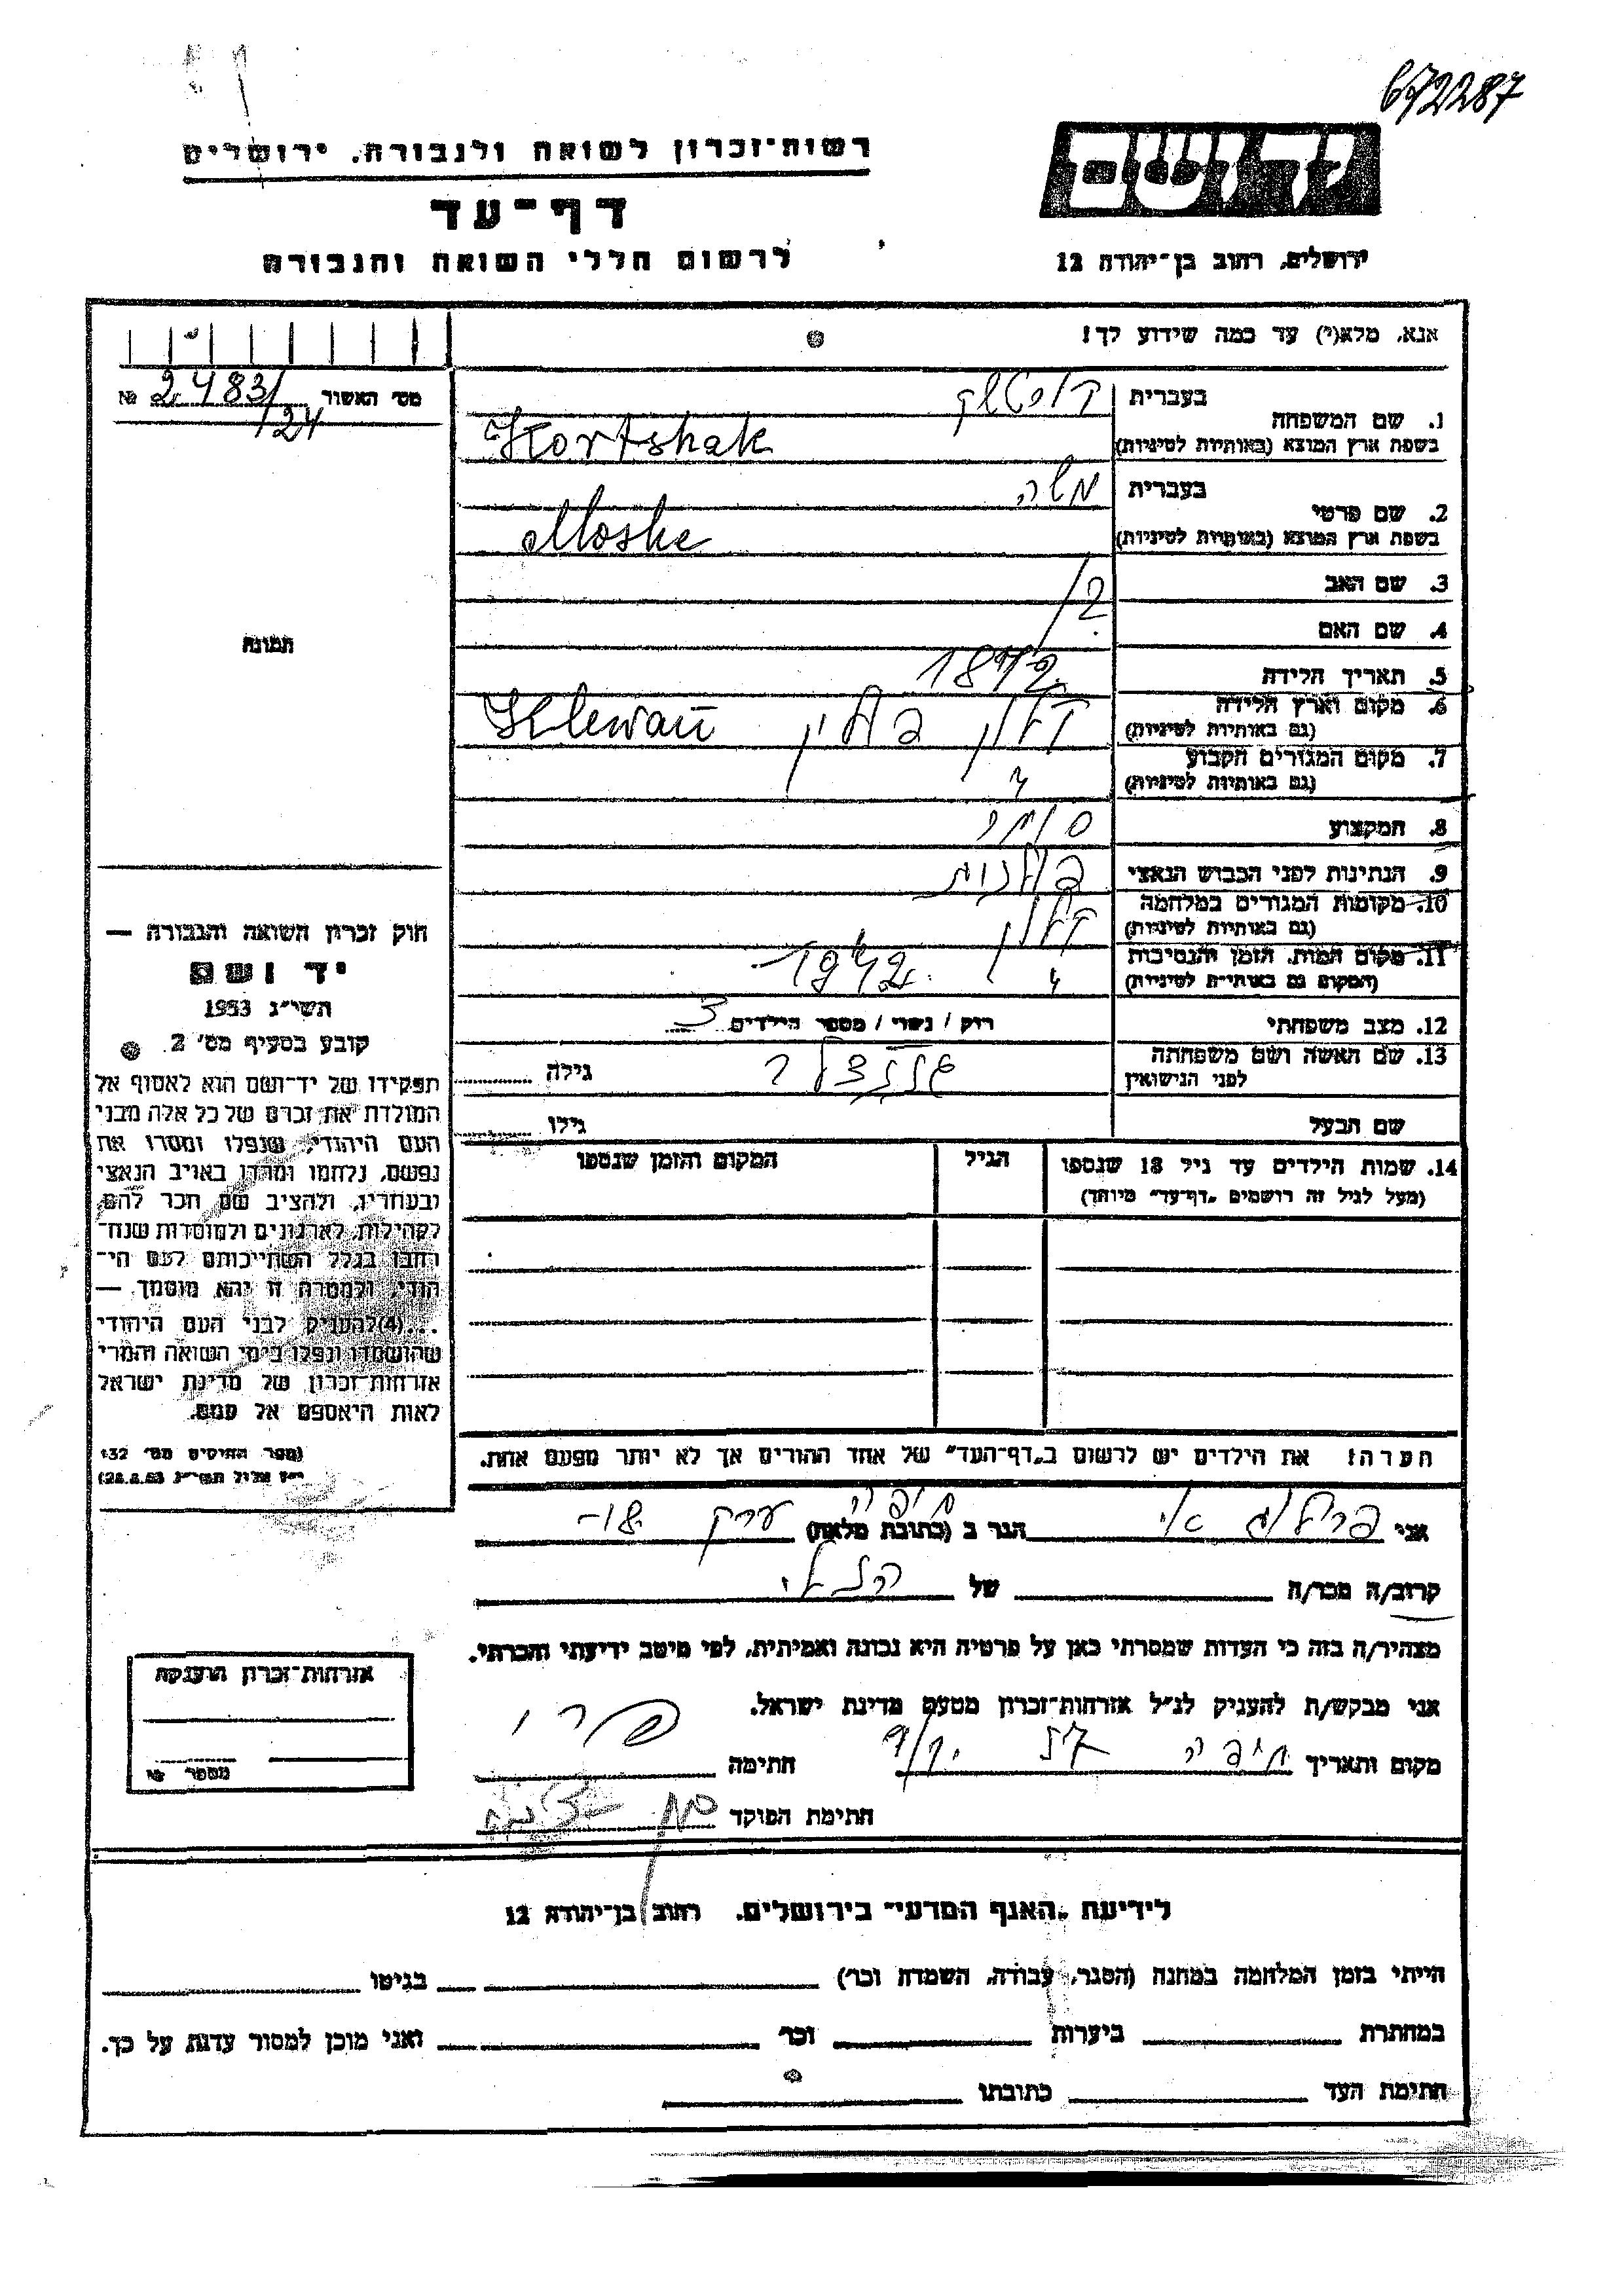 672287
רשות־זכרון לשואה ולגבורה. ירושלים
יד ושם
דף־עד
לרשום חללי השואה והגבורה
ירושלים, רחוב בן־יהודה 12
אנא, מלא(י) עד כמה שידוע לך!
מס׳ האשור 2483/ №
/24
בעברית
1. שם המשפחה
בשפת ארץ המוצא (באותיות לטיניות) Kortshak
בעברית משה
2. שם פרטי
בשפת ארץ המוצא (באותיות לטיניות) Moshe
3. שם האב
4. שם האם
תמונה
5. תאריך הלידה 1872
6. מקום וארץ הלידה Klewań
(גם באותיות לטיניות)
7. מקום המגורים הקבוע
(גם באותיות לטיניות)
8. המקצוע סוחר
9. הנתינות לפני הכבוש הנאצי פולנית
10. מקומות המגורים במלחמה
(גם באותיות לטיניות)
11. מקום המות, הזמן והנסיבות 1942
(המקום גם באותיות לטיניות)
12. מצב משפחתי רוק / נשוי / מספר הילדים 3
13. שם האשה ושם משפחתה גילה
לפני הנישואין
שם הבעל גילו
14. שמות הילדים עד גיל 18 שנספו הגיל המקום והזמן שנספו
(מעל לגיל זה רושמים „דף־עד״ מיוחד)
חוק זכרון השואה והגבורה —
יד ושם
תשי״ג 1953
קובע בסעיף מס׳ 2.
תפקידו של יד־ושם הוא לאסוף אל
המולדת את זכרם של כל אלה מבני
העם היהודי, שנפלו ומסרו את
נפשם, נלחמו ומרדו באויב הנאצי
ובעוזריו, ולהציב שם וזכר להם,
לקהילות, לארגונים ולמוסדות שנח־
רבו בגלל השתייכותם לעם הי־
הודי, ולמטרה זו יהא מוסמך —
...(4)להעניק לבני העם היהודי
שהושמדו ונפלו בימי השואה והמרי
אזרחות־זכרון של מדינת ישראל
לאות היאספם אל עמם.
(ספר החוקים מס׳ 132
י״ז אלול תשי״ג 28.8.53)
הערה! את הילדים יש לרשום ב„דף־העד״ של אחד ההורים אך לא יותר מפעם אחת.
אני הגר ב (כתובת מלאה) חיפה
קרוב/ה מכר/ה של
מצהיר/ה בזה כי העדות שמסרתי כאן על פרטיה היא נכונה ואמיתית, לפי מיטב ידיעתי והכרתי.
אני מבקש/ת להעניק לנ״ל אזרחות־זכרון מטעם מדינת ישראל.
מקום ותאריך חיפה חתימה
חתימת הפוקד
אזרחות־זכרון הוענקה
מספר №
לידיעת „האגף המדעי״ בירושלים. רחוב בן־יהודה 12
הייתי בזמן המלחמה במחנה (הסגר, עבודה, השמדה וכו׳) בגיטו
במחתרת ביערות וכו׳ ואני מוכן למסור עדות על כך.
חתימת העד כתובתו